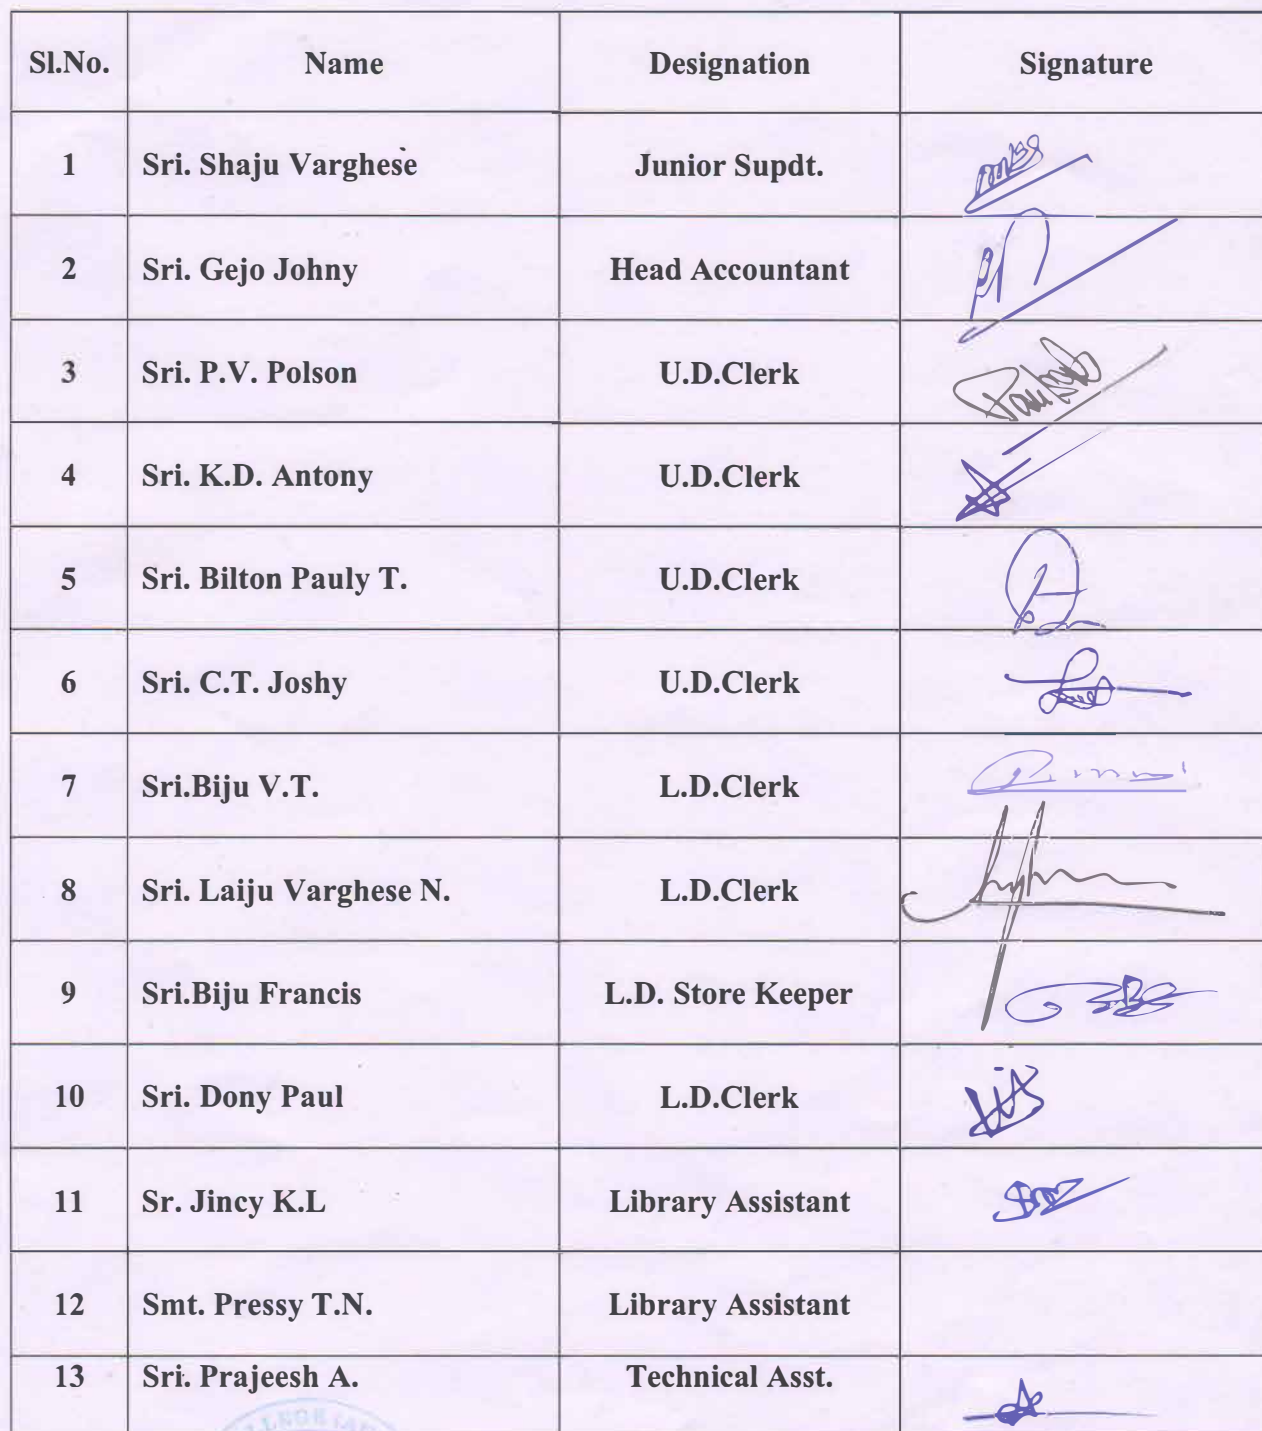 Sl.No. Name Designation Signature
1 Sri. Shaju Varghese Junior Supdt.
2 Sri. Gejo Johny Head Accountant
3 Sri. P.V. Polson U.D.Clerk
4 Sri. K.D. Antony U.D.Clerk
5 Sri. Bilton Pauly T. U.D.Clerk
6 Sri. C.T. Joshy U.D.Clerk
7 Sri.Biju V.T. L.D.Clerk
8 Sri. Laiju Varghese N. L.D.Clerk
9 Sri.Biju Francis L.D. Store Keeper
10 Sri. Dony Paul L.D.Clerk
11 Sr. Jincy K.L Library Assistant
12 Smt. Pressy T.N. Library Assistant
13 Sri. Prajeesh A. Technical Asst.